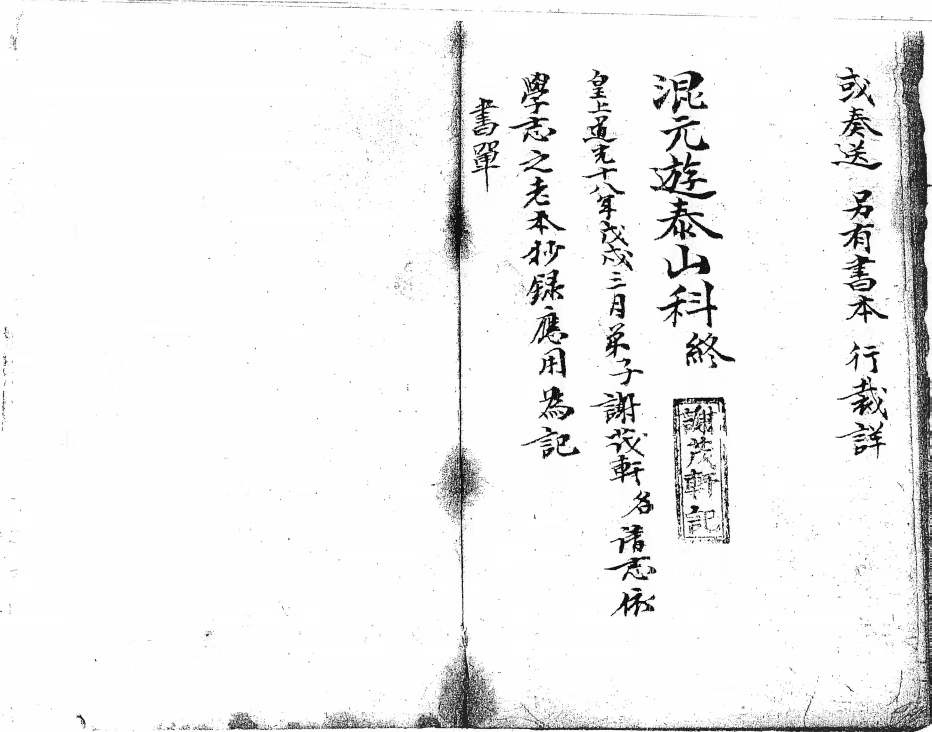 或奏送 另有書本 行裁詳
混元遊泰山科終
謝茂軒記
皇上道光十八年戊戌三月弟子謝茂軒名請志依
學志之老本抄録應用為記
書單